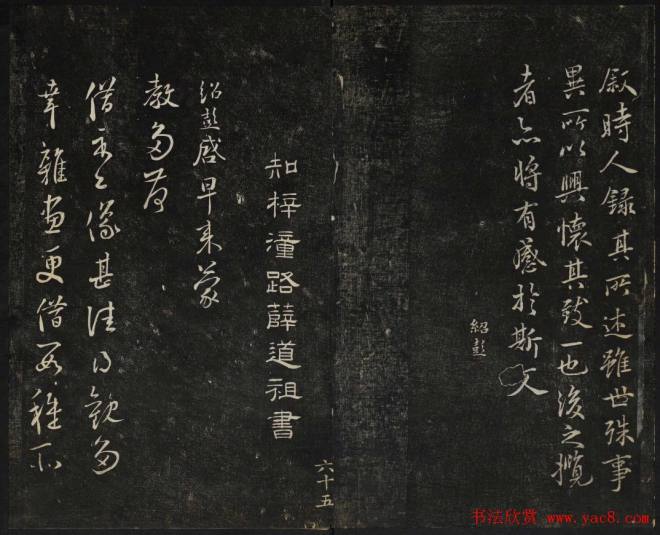 叙時人錄其所述雖世殊事
異所以興懷其致一也後之攬
者亦將有感於斯文
紹彭
知梓潼路薛道祖書
六十五
紹彭啓早来蒙
教多荷
借示像甚佳得觀多
幸雜畫更借數種不
书法欣赏 www.yac8.com